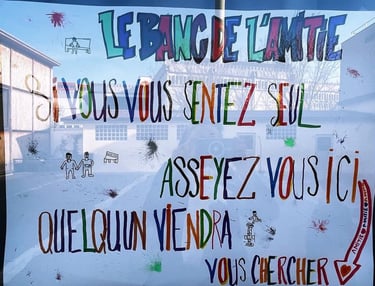 LE BANC DE L'AMITIE
SI VOUS VOUS SENTEZ SEUL
ASSEYEZ VOUS ICI
QUELQU'UN VIENDRA
VOUS CHERCHER